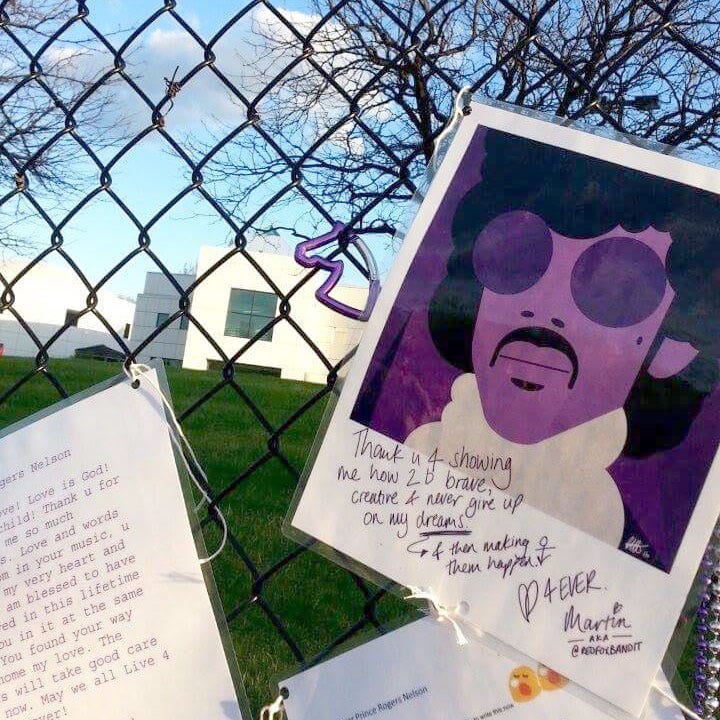 gers Nelson
ove! Love is God!
child! Thank u for
me so much
s. Love and words
m in your music, u
my very heart and
am blessed to have
ved in this lifetime
ou in it at the same
You found your way
home my love. The
s will take good care
now. May we all Live 4
ever!
Thank u 4 showing
me how 2 b brave,
creative & never give up
on my dreams.
& then making
them happen
4 EVER.
Martin
AKA
@REDFOXBANDIT
r Prince Rogers Nelson
to write this now